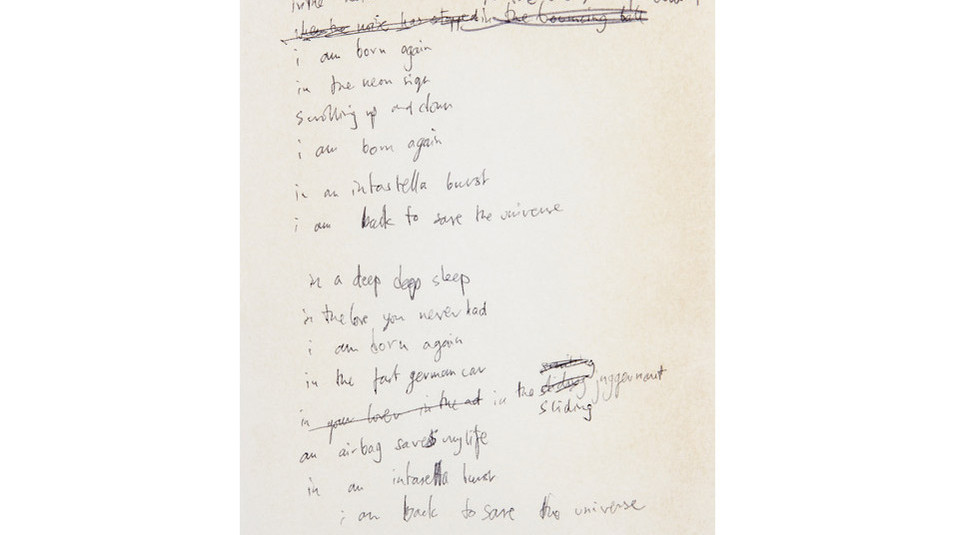 in the
when the noise has stopped in the bouncing ball
i am born again
in the neon sign
scrolling up and down
i am born again
in an intastella burst
i am back to save the universe
in a deep deep sleep
in the love you never had
i am born again
in the fast german car
in your lover in the ad in the sliding juggernaut
sliding
an airbag saves my life
in an intasella burst
i am back to save the universe